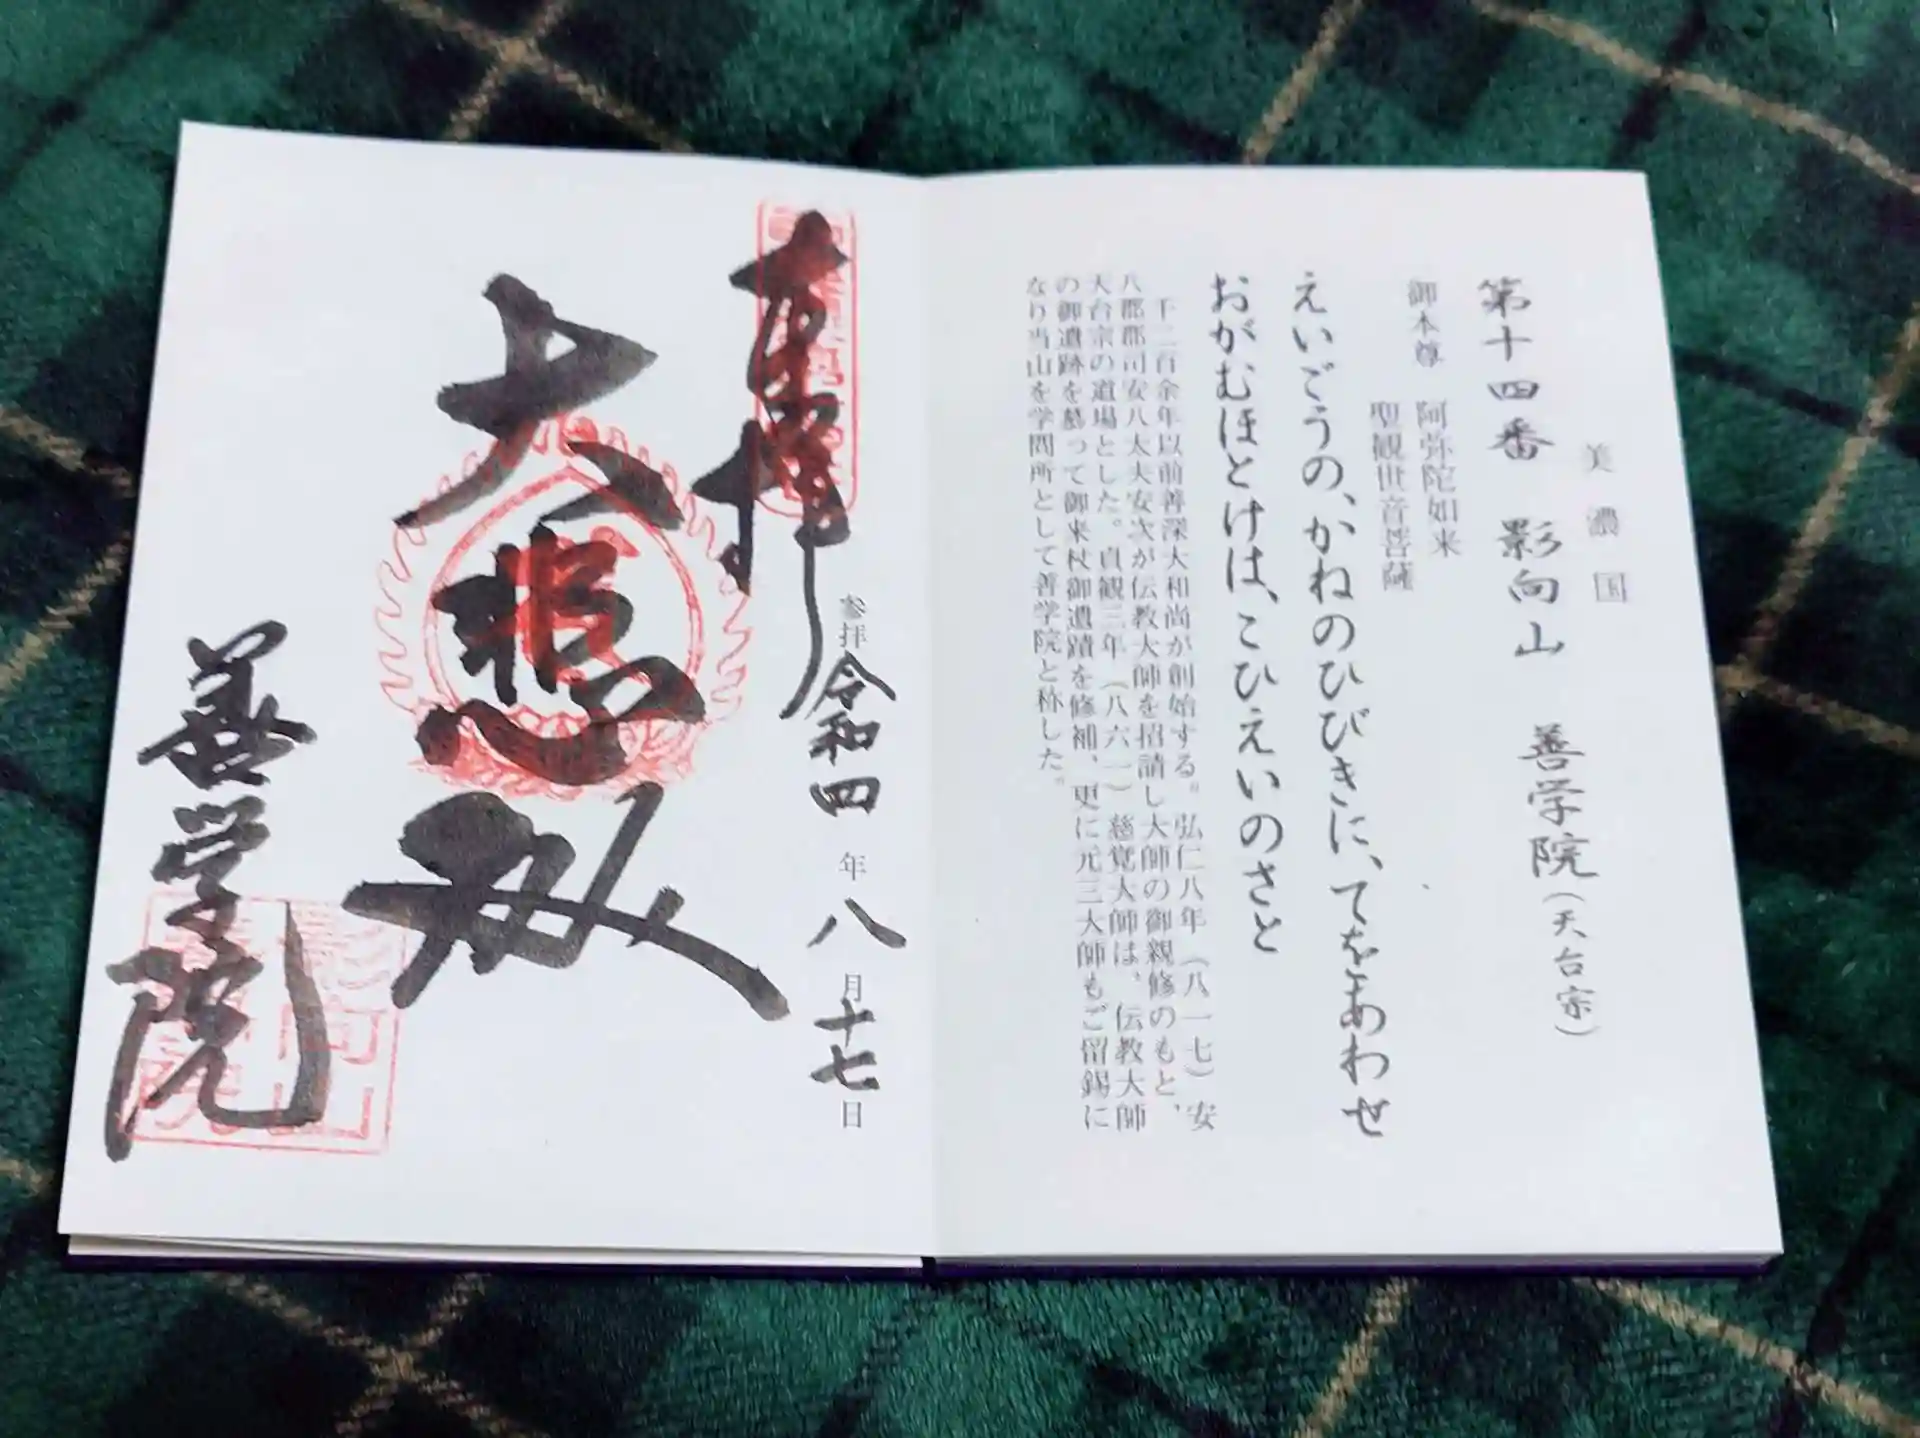 美濃国
第十四番 影向山 善学院(天台宗)
御本尊 阿弥陀如来
聖観世音菩薩
えいごうの、かねのひびきに、てをあわせ
おがむほとけは、こひえいのさと
千二百余年以前善深大和尚が創始する。弘仁八年(八一七)安
八郡郡司安八太夫安次が伝教大師を招請し大師の御親修のもと、
天台宗の道場とした。貞観三年(八六一)慈覚大師は、伝教大師
の御遺跡を慕って御来杖御遺蹟を修補、更に元三大師もご留錫に
なり当山を学問所として善学院と称した。
奉拝
参拝 令和四年八月十七日
大悲殿
善学院